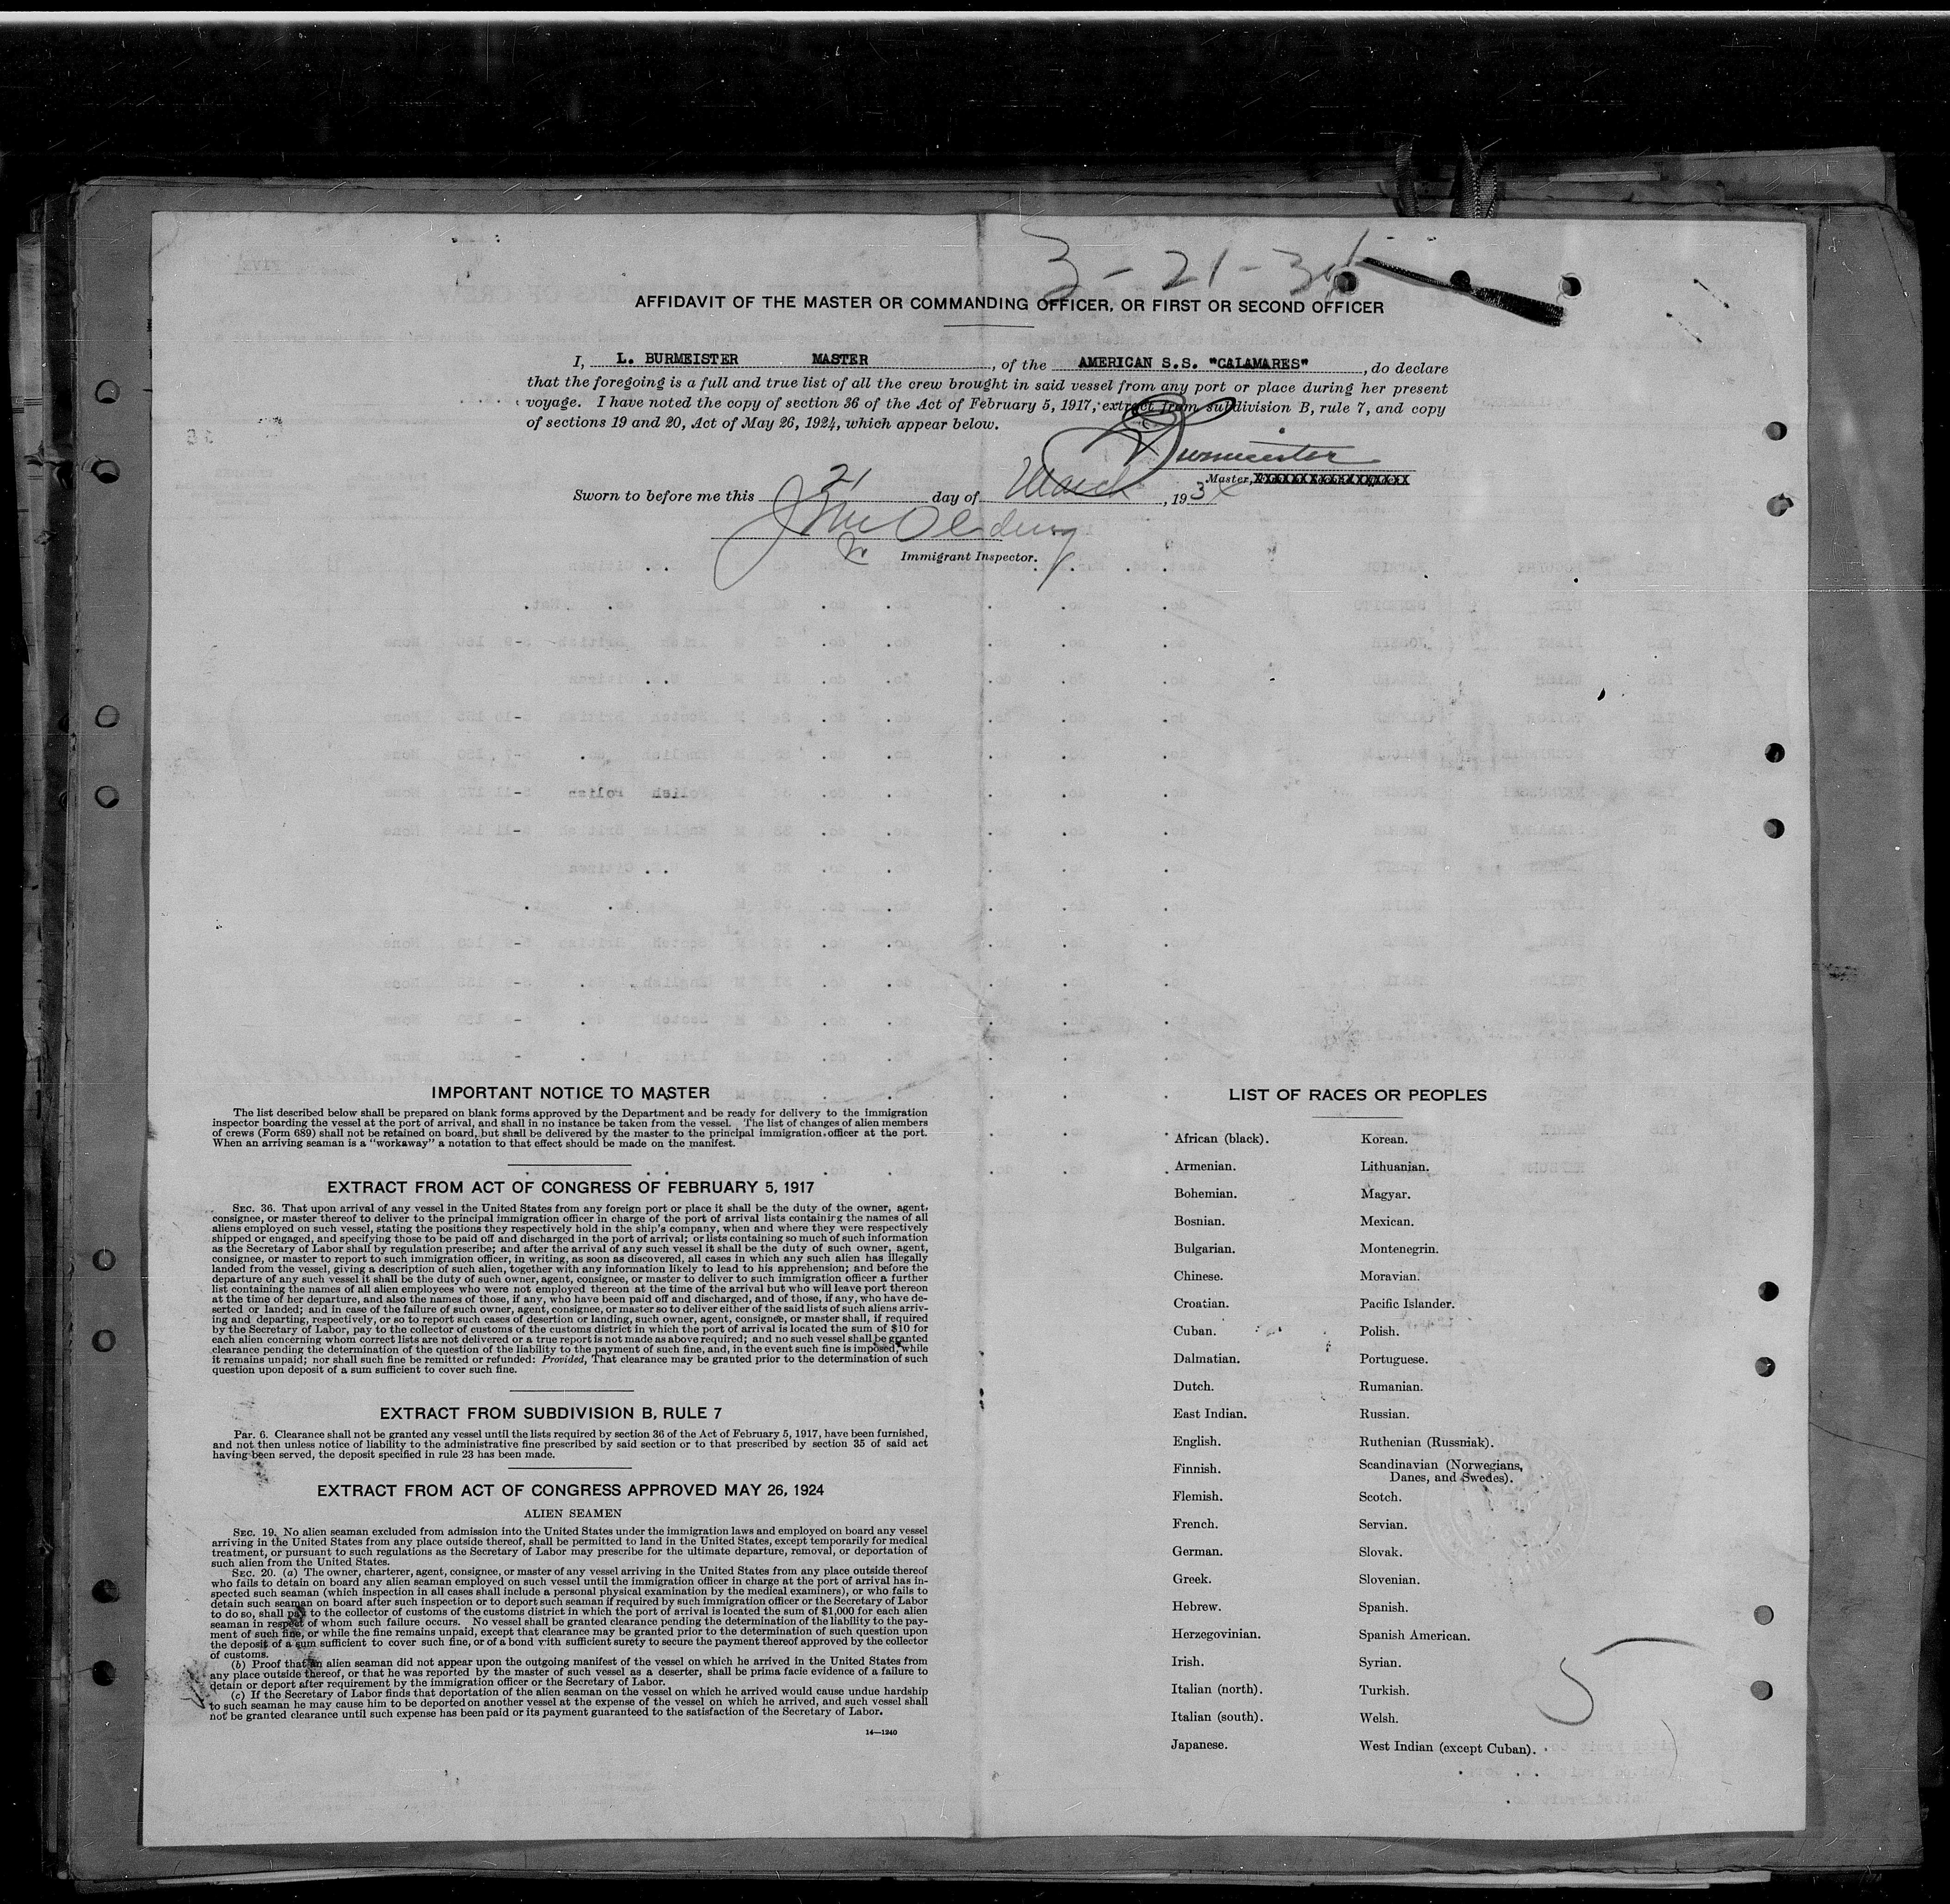 3-21-34
AFFIDAVIT OF THE MASTER OR COMMANDING OFFICER, OR FIRST OR SECOND OFFICER
I, L. BURMEISTER MASTER, of the AMERICAN S.S. "CALAMARES", do declare
that the foregoing is a full and true list of all the crew brought in said vessel from any port or place during her present
voyage. I have noted the copy of section 36 of the Act of February 5, 1917, extract from subdivision B, rule 7, and copy
of sections 19 and 20, Act of May 26, 1924, which appear below.
Burmeister
Master,
Sworn to before me this 21 day of March, 193
Immigrant Inspector.
IMPORTANT NOTICE TO MASTER
The list described below shall be prepared on blank forms approved by the Department and be ready for delivery to the immigration
inspector boarding the vessel at the port of arrival, and shall in no instance be taken from the vessel. The list of changes of alien members
of crews (Form 689) shall not be retained on board, but shall be delivered by the master to the principal immigration officer at the port.
When an arriving seaman is a "workaway" a notation to that effect should be made on the manifest.
EXTRACT FROM ACT OF CONGRESS OF FEBRUARY 5, 1917
SEC. 36. That upon arrival of any vessel in the United States from any foreign port or place it shall be the duty of the owner, agent,
consignee, or master thereof to deliver to the principal immigration officer in charge of the port of arrival lists containing the names of all
aliens employed on such vessel, stating the positions they respectively hold in the ship's company, when and where they were respectively
shipped or engaged, and specifying those to be paid off and discharged in the port of arrival; or lists containing so much of such information
as the Secretary of Labor shall by regulation prescribe; and after the arrival of any such vessel it shall be the duty of such owner, agent,
consignee, or master to report to such immigration officer, in writing, as soon as discovered, all cases in which any such alien has illegally
landed from the vessel, giving a description of such alien, together with any information likely to lead to his apprehension; and before the
departure of any such vessel it shall be the duty of such owner, agent, consignee, or master to deliver to such immigration officer a further
list containing the names of all alien employees who were not employed thereon at the time of the arrival but who will leave port thereon
at the time of her departure, and also the names of those, if any, who have been paid off and discharged, and of those, if any, who have de-
serted or landed; and in case of the failure of such owner, agent, consignee, or master so to deliver either of the said lists of such aliens arriv-
ing and departing, respectively, or so to report such cases of desertion or landing, such owner, agent, consignee, or master shall, if required
by the Secretary of Labor, pay to the collector of customs of the customs district in which the port of arrival is located the sum of $10 for
each alien concerning whom correct lists are not delivered or a true report is not made as above required; and no such vessel shall be granted
clearance pending the determination of the question of the liability to the payment of such fine, and, in the event such fine is imposed, while
it remains unpaid; nor shall such fine be remitted or refunded: Provided, That clearance may be granted prior to the determination of such
question upon deposit of a sum sufficient to cover such fine.
EXTRACT FROM SUBDIVISION B, RULE 7
PAR. 6. Clearance shall not be granted any vessel until the lists required by section 36 of the Act of February 5, 1917, have been furnished,
and not then unless notice of liability to the administrative fine prescribed by said section or to that prescribed by section 35 of said act
having been served, the deposit specified in rule 23 has been made.
EXTRACT FROM ACT OF CONGRESS APPROVED MAY 26, 1924
ALIEN SEAMEN
SEC. 19. No alien seaman excluded from admission into the United States under the immigration laws and employed on board any vessel
arriving in the United States from any place outside thereof, shall be permitted to land in the United States, except temporarily for medical
treatment, or pursuant to such regulations as the Secretary of Labor may prescribe for the ultimate departure, removal, or deportation of
such alien from the United States.
SEC. 20. (a) The owner, charterer, agent, consignee, or master of any vessel arriving in the United States from any place outside thereof
who fails to detain on board any alien seaman employed on such vessel until the immigration officer in charge at the port of arrival has in-
spected such seaman (which inspection in all cases shall include a personal physical examination by the medical examiners), or who fails to
detain such seaman on board after such inspection or to deport such seaman if required by such immigration officer or the Secretary of Labor
to do so, shall pay to the collector of customs of the customs district in which the port of arrival is located the sum of $1,000 for each alien
seaman in respect of whom such failure occurs. No vessel shall be granted clearance pending the determination of the liability to the pay-
ment of such fine, or while the fine remains unpaid, except that clearance may be granted prior to the determination of such question upon
the deposit of a sum sufficient to cover such fine, or of a bond with sufficient surety to secure the payment thereof approved by the collector
of customs.
(b) Proof that an alien seaman did not appear upon the outgoing manifest of the vessel on which he arrived in the United States from
any place outside thereof, or that he was reported by the master of such vessel as a deserter, shall be prima facie evidence of a failure to
detain or deport after requirement by the immigration officer or the Secretary of Labor.
(c) If the Secretary of Labor finds that deportation of the alien seaman on the vessel on which he arrived would cause undue hardship
to such seaman he may cause him to be deported on another vessel at the expense of the vessel on which he arrived, and such vessel shall
not be granted clearance until such expense has been paid or its payment guaranteed to the satisfaction of the Secretary of Labor.
14—1240
LIST OF RACES OR PEOPLES
African (black). Korean.
Armenian. Lithuanian.
Bohemian. Magyar.
Bosnian. Mexican.
Bulgarian. Montenegrin.
Chinese. Moravian.
Croatian. Pacific Islander.
Cuban. Polish.
Dalmatian. Portuguese.
Dutch. Rumanian.
East Indian. Russian.
English. Ruthenian (Russniak).
Finnish. Scandinavian (Norwegians,
Danes, and Swedes).
Flemish. Scotch.
French. Servian.
German. Slovak.
Greek. Slovenian.
Hebrew. Spanish.
Herzegovinian. Spanish American.
Irish. Syrian.
Italian (north). Turkish.
Italian (south). Welsh.
Japanese. West Indian (except Cuban).
5